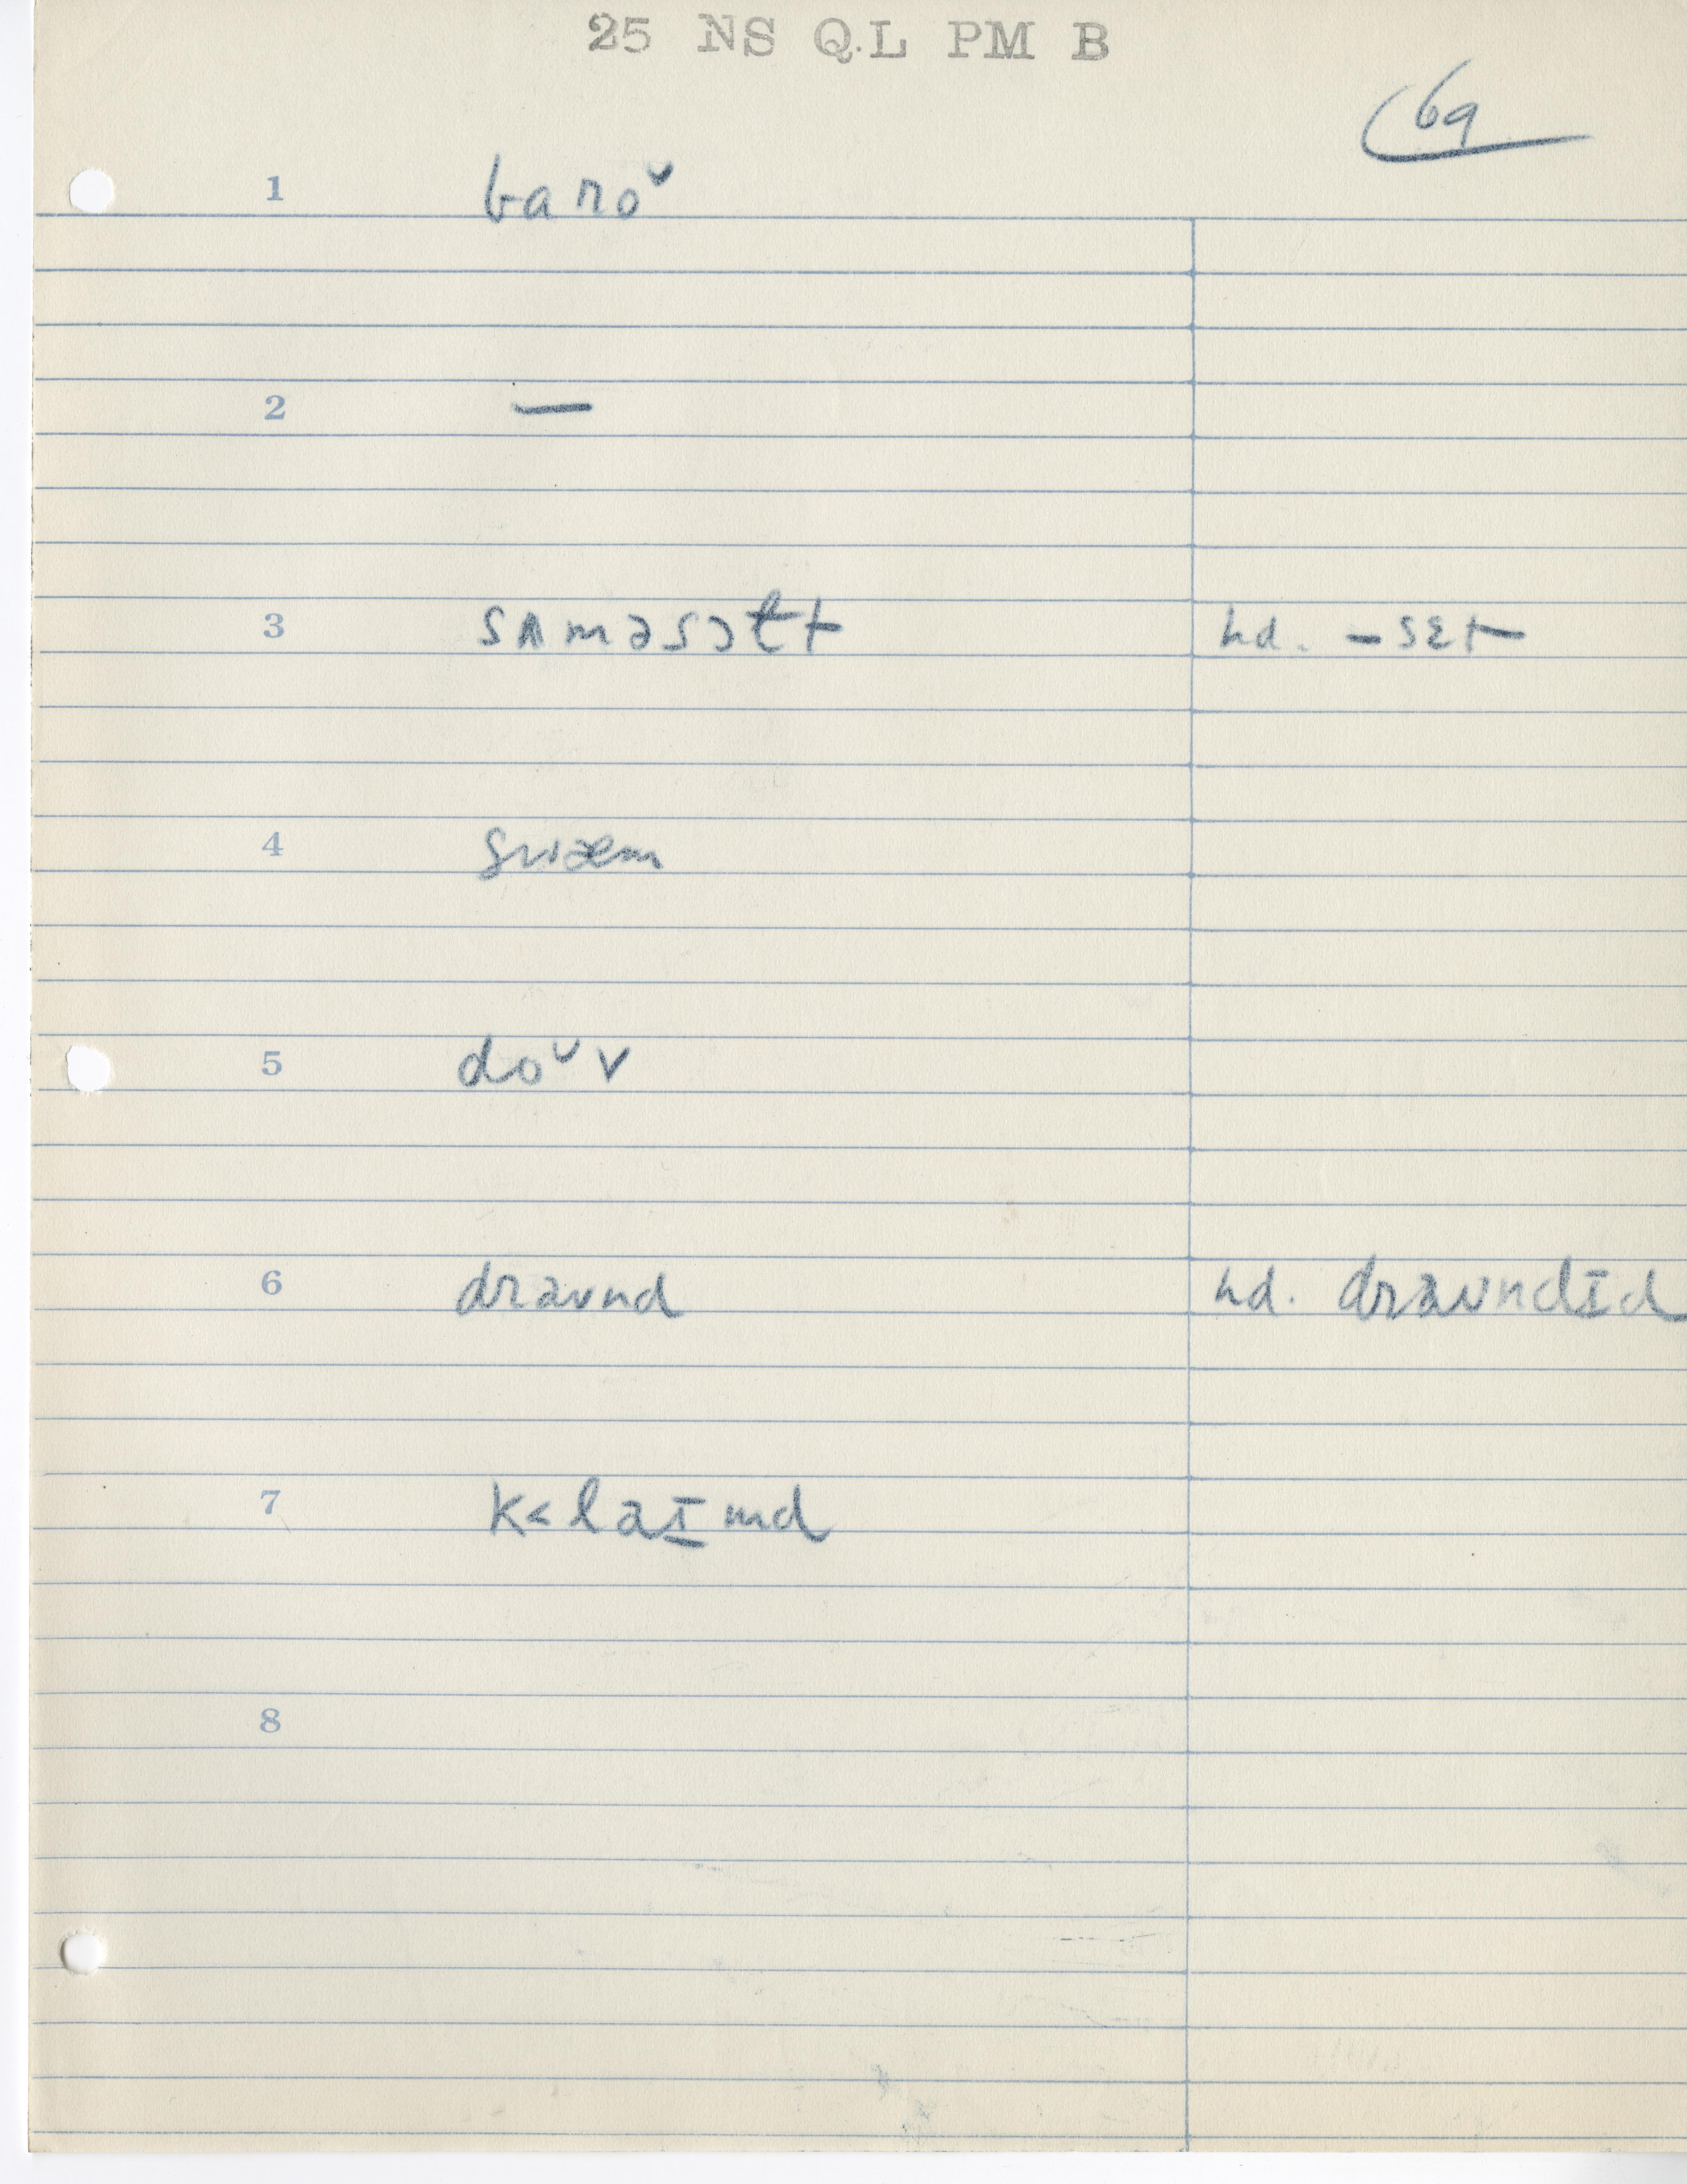 25 NS QL PM B
69
1 baroᵛ
2 —
3 sʌməsɔtt hd. – sɛt –
4 swæm
5 doᵛ v
6 draʊnd hd. draʊndɪd
7 k< laɪmd
8